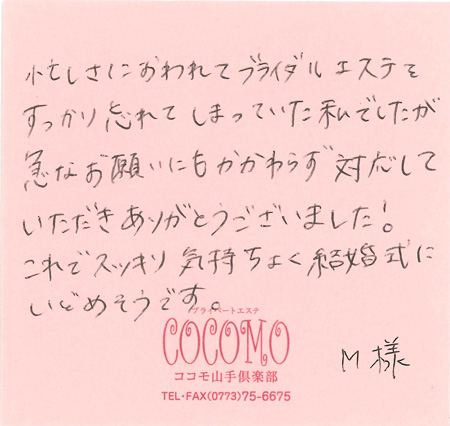 忙しさにおわれてブライダルエステを
すっかり忘れてしまっていた私でしたが
急なお願いにもかかわらず対応して
いただきありがとうございました!
これでスッキリ気持ちよく結婚式に
いどめそうです。
プライベートエステ
COCOMO
ココモ山手倶楽部
TEL・FAX(0773)75-6675
M様